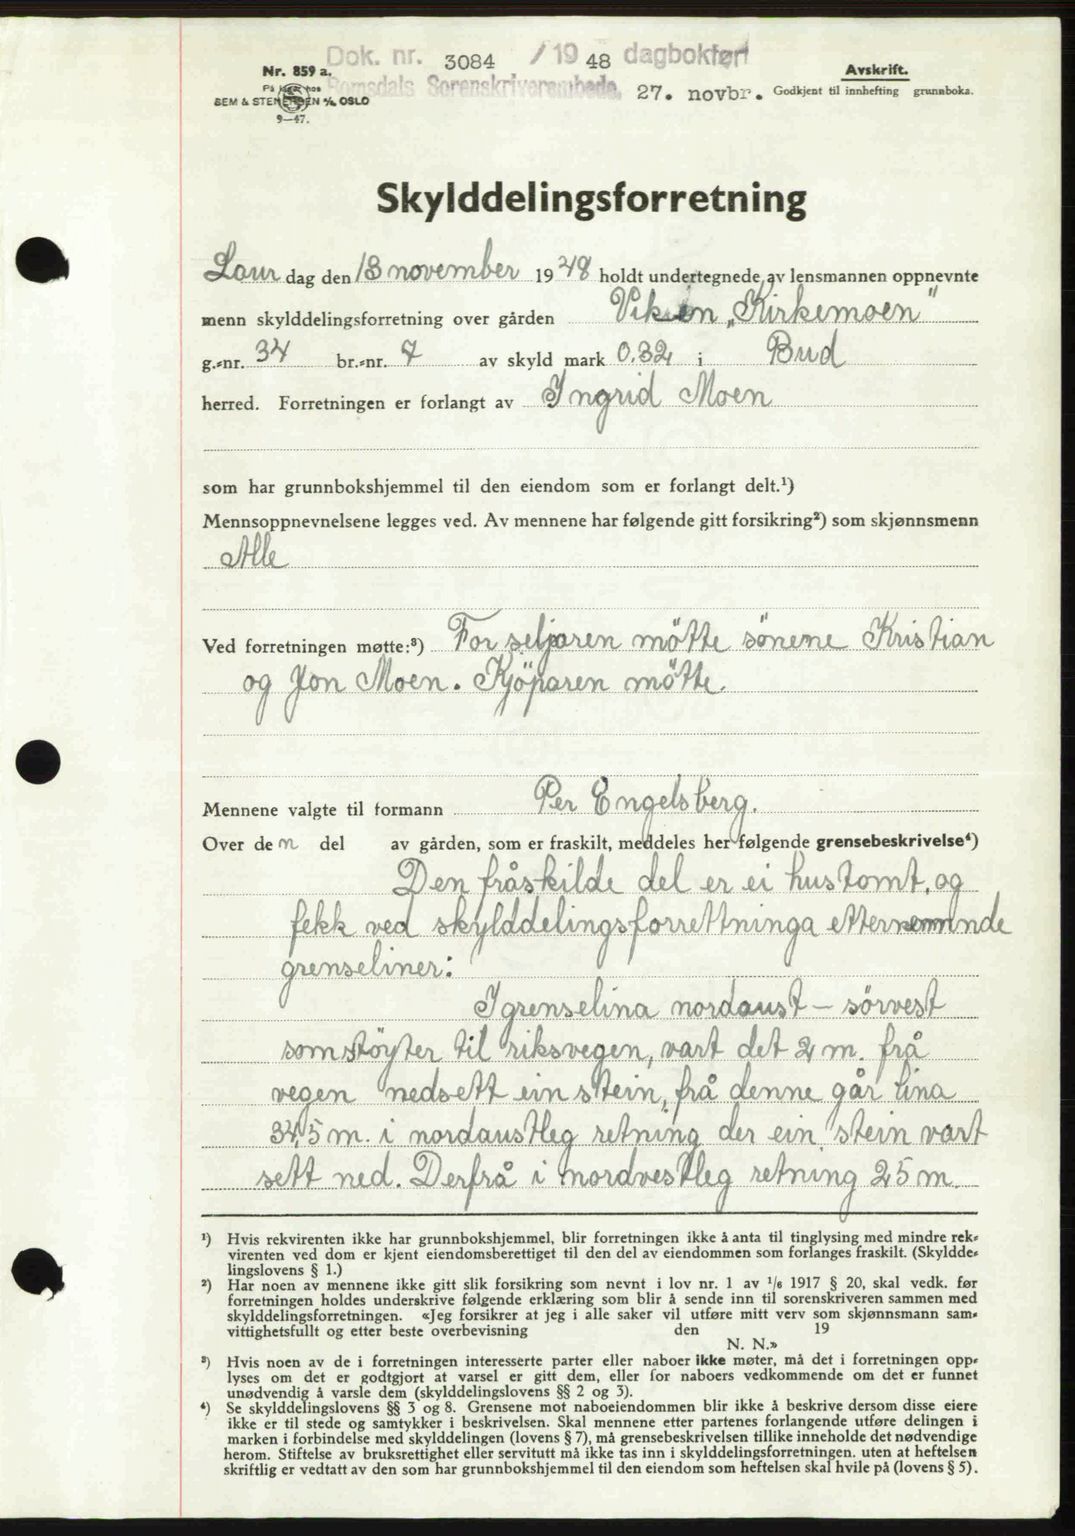 Dok. nr. 3084 /19 48 dagbokført
Romsdals Sorenskriverembede. 27. novbr.
Nr. 859 a.
På lager hos
SEM & STENERSEN A/S OSLO
9—47.
Avskrift.
Godkjent til innhefting grunnboka.
Skylddelingsforretning
Laur dag den 13 november 1948 holdt undertegnede av lensmannen oppnevnte
menn skylddelingsforretning over gården "Kirkemoen"
g.-nr. 34 br.-nr. 7 av skyld mark 0.32 i Bud
herred. Forretningen er forlangt av Ingrid Moen
som har grunnbokshjemmel til den eiendom som er forlangt delt.¹)
Mennsoppnevnelsene legges ved. Av mennene har følgende gitt forsikring²) som skjønnsmenn
Alle
Ved forretningen møtte:³) For seljaren mötte sönene Kristian
og Jon Moen. Kjöparen mötte.
Mennene valgte til formann Per Engelsberg.
Over den del av gården, som er fraskilt, meddeles her følgende grensebeskrivelse⁴)
Den fråskilde del er ei hustomt, og
fekk ved skylddelingsforrettninga etternemnde
grenseliner:
I grenselina nordaust – sörvest
som stöyter til riksvegen, vart det 2 m. frå
vegen nedsett ein stein, frå denne går lina
34,5 m. i nordaustleg retning der ein stein vart
sett ned. Derfrå i nordvestleg retning 25 m.
¹) Hvis rekvirenten ikke har grunnbokshjemmel, blir forretningen ikke å anta til tinglysing med mindre rek-
virenten ved dom er kjent eiendomsberettiget til den del av eiendommen som forlanges fraskilt. (Skyldde-
lingslovens § 1.)
²) Har noen av mennene ikke gitt slik forsikring som nevnt i lov nr. 1 av 1/6 1917 § 20, skal vedk. før
forretningen holdes underskrive følgende erklæring som blir å sende inn til sorenskriveren sammen med
skylddelingsforretningen. «Jeg forsikrer at jeg i alle saker vil utføre mitt verv som skjønnsmann sam-
vittighetsfullt og etter beste overbevisning den 19
N. N.»
³) Hvis noen av de i forretningen interesserte parter eller naboer ikke møter, må det i forretningen opp-
lyses om det er godtgjort at varsel er gitt dem, eller for naboers vedkommende om det er funnet
unødvendig å varsle dem (skylddelingslovens §§ 2 og 3).
⁴) Se skylddelingslovens §§ 3 og 8. Grensene mot naboeiendommen blir ikke å beskrive dersom disse eiere
ikke er til stede og samtykker i beskrivelsen. Skal mennene etter partenes forlangende utføre delingen i
marken i forbindelse med skylddelingen (lovens § 7), må grensebeskrivelsen tillike inneholde det nødvendige
herom. Stiftelse av bruksrettighet eller servitutt må ikke tas inn i skylddelingsforretningen. uten at heftelsen
skriftlig er vedtatt av den som har grunnbokshjemmel til den eiendom som heftelsen skal hvile på (lovens § 5).